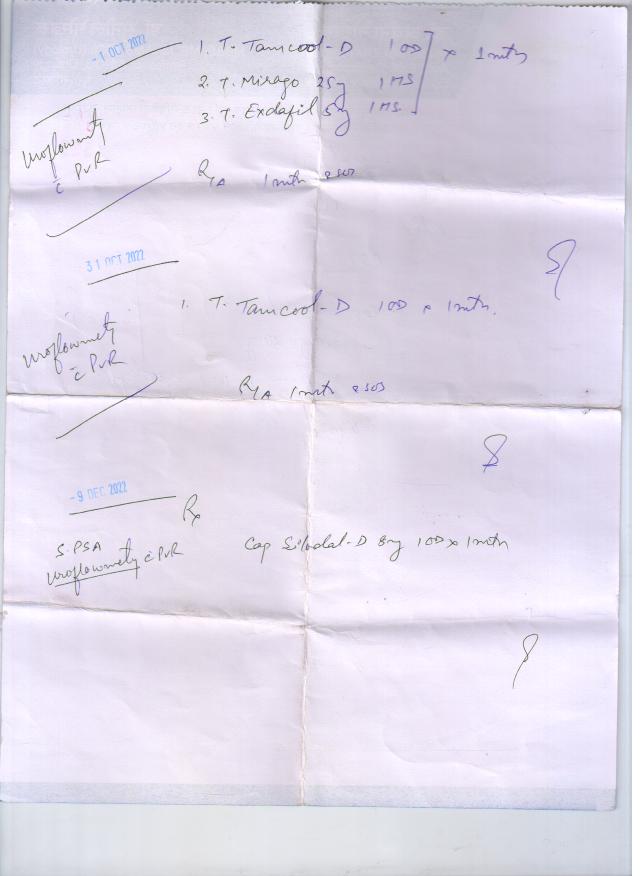 -1 OCT 2022
1. T. Tamcool-D 1OD
2. T. Mirago 25mg 1 HS
3. T. Exdafil 5mg 1 HS.
x 1 mth
Uroflowmetry
c̄ PVR
1 mth & SOS
31 OCT 2022
1. T. Tamcool-D 1OD x 1 mth.
Uroflowmetry
c̄ PVR
1 mth & SOS
-9 DEC 2022
Rx
S. PSA
Uroflowmetry c̄ PVR
Cap Silodal-D 8mg 1OD x 1 mth